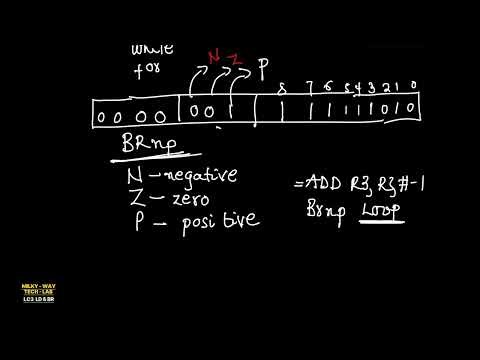 while
for
N Z P
8 7 6 5 4 3 2 1 0
0 0 0 0 0 0 1 1 1 1 1 1 0 1 0
BRnp
N - negative
Z - zero
P - positive
= ADD R3, R3, #-1
Brnp Loop
MILKY - WAY
TECH - LAB
LC3 LD & BR